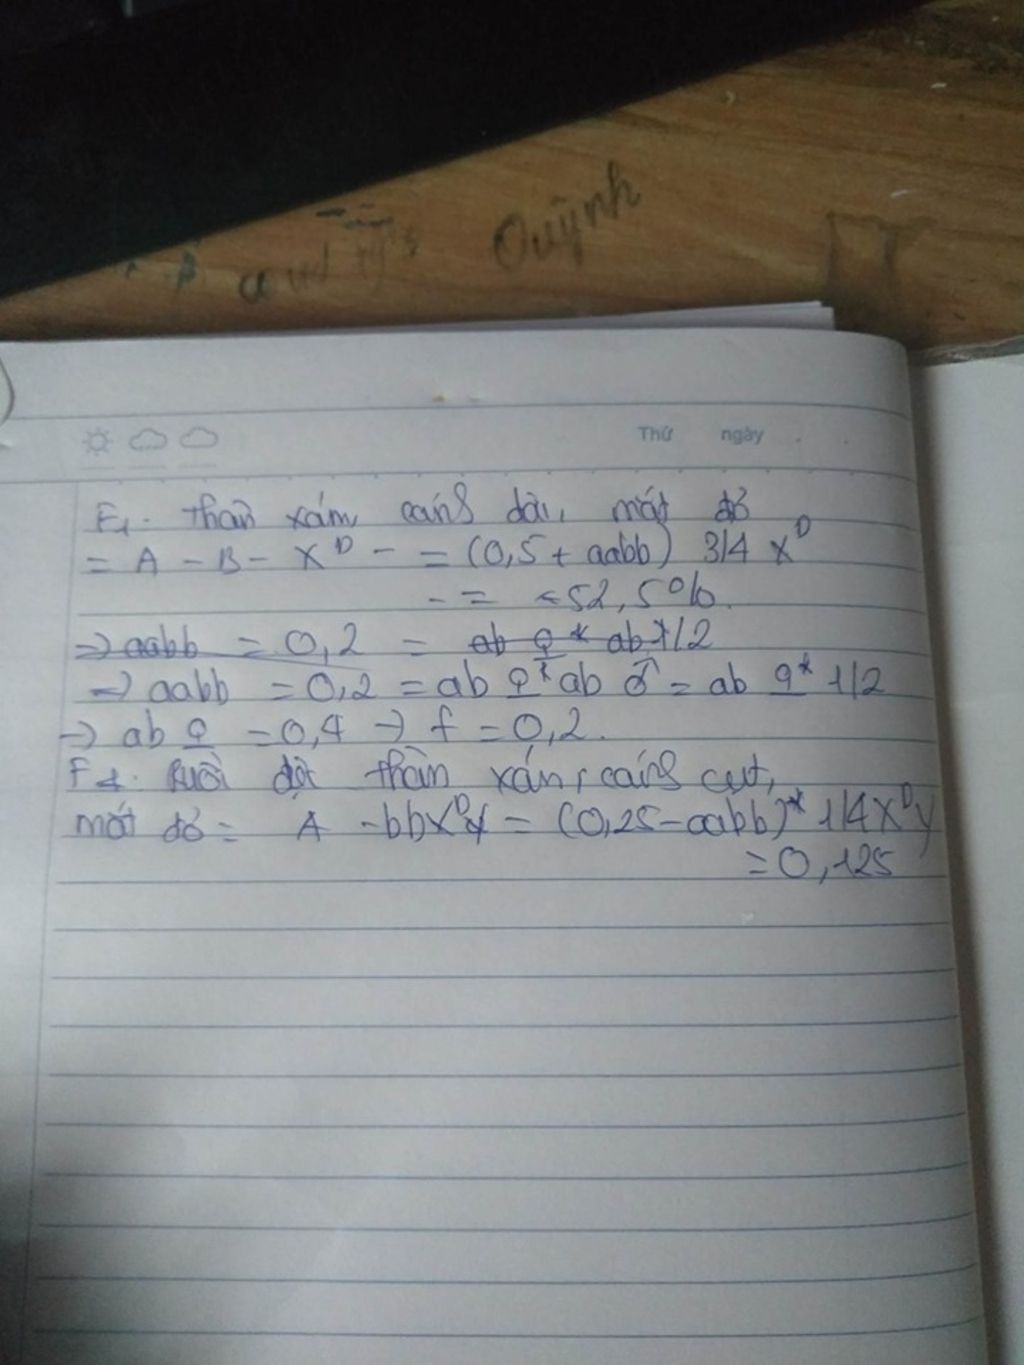 Quỳnh
Thứ ngày
F1. Thân xám, cánh dài, mắt đỏ
= A - B - X^D - = (0,5 + aabb) 3/4 X^D
- = 52,5%.
=> aabb = 0,2 = ab ♀ * ab * 1/2
=> aabb = 0,2 = ab ♀ * ab ♂ = ab ♀ * 1/2
-> ab ♀ = 0,4 -> f = 0,2.
F1. Ruồi đực thân xám, cánh cụt,
mắt đỏ = A - bb X^D Y = (0,25 - aabb) * 1/4 X^D Y
= 0,125